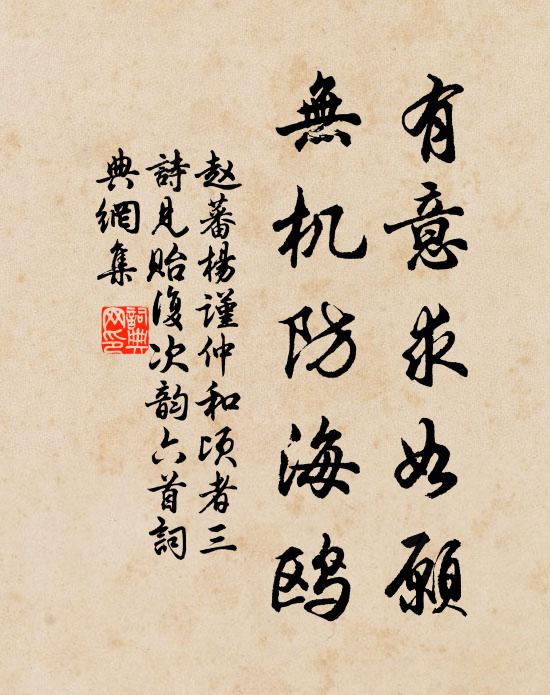 有意求如願
無机防海鸥
赵蕃楊謹仲和頃者三
詩見貽復次韵六首詞
典網集
詞典网印